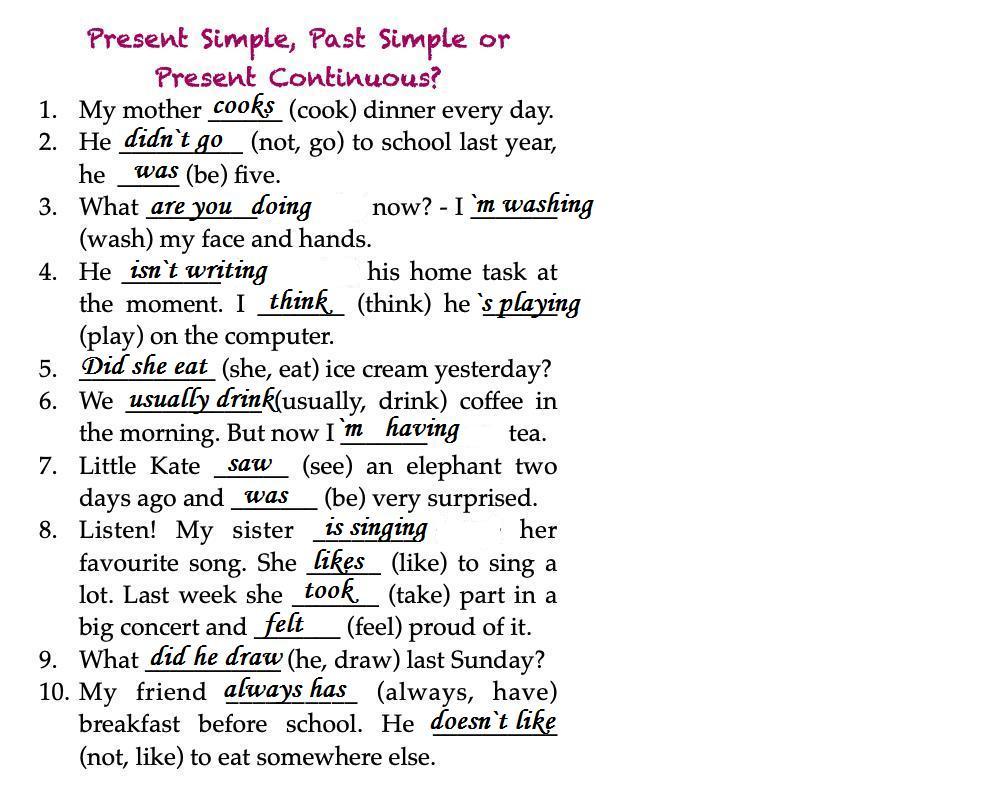 Present Simple, Past Simple or
Present Continuous?
1. My mother cooks (cook) dinner every day.
2. He didn`t go (not, go) to school last year,
he was (be) five.
3. What are you doing now? - I `m washing
(wash) my face and hands.
4. He isn`t writing his home task at
the moment. I think (think) he `s playing
(play) on the computer.
5. Did she eat (she, eat) ice cream yesterday?
6. We usually drink (usually, drink) coffee in
the morning. But now I `m having tea.
7. Little Kate saw (see) an elephant two
days ago and was (be) very surprised.
8. Listen! My sister is singing her
favourite song. She likes (like) to sing a
lot. Last week she took (take) part in a
big concert and felt (feel) proud of it.
9. What did he draw (he, draw) last Sunday?
10. My friend always has (always, have)
breakfast before school. He doesn`t like
(not, like) to eat somewhere else.